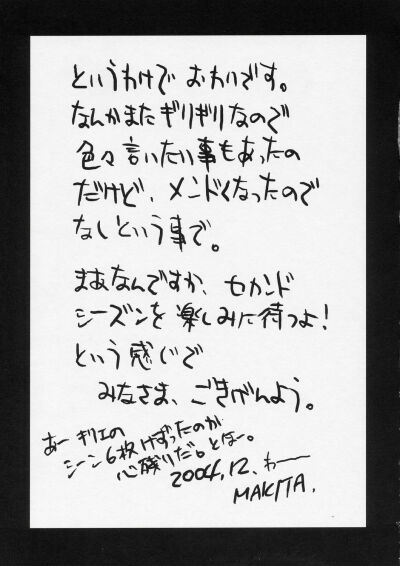 というわけで おわりです。
なんかまたギリギリなので
色々言いたい事もあったの
だけど、メンドくなったので
なしという事で。
まあなんですか、セカンド
シーズンを楽しみに待つよ!
という感じで
みなさま、ごきげんよう。
あー キリエの
シーン6枚けずったのが
心残りだ。とほー。
2004.12. わー
MAKITA.